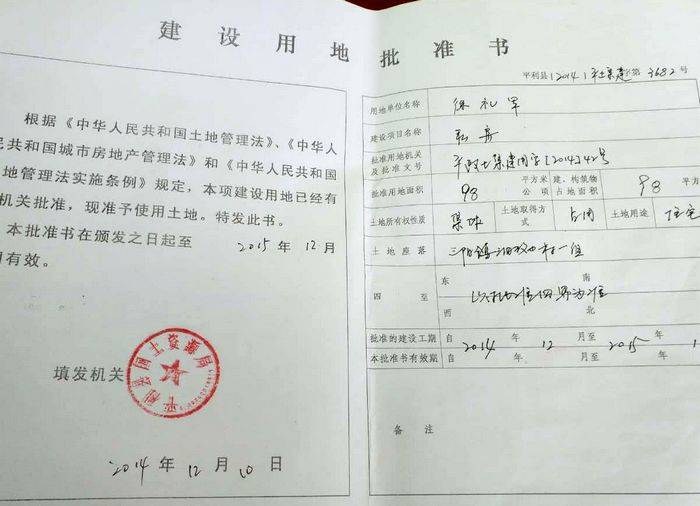 建设用地批准书
根据《中华人民共和国土地管理法》、《中华人
民共和国城市房地产管理法》和《中华人民共和国
地管理法实施条例》规定，本项建设用地已经有
机关批准，现准予使用土地。特发此书。
本批准书在颁发之日起至 2015 年 12 月
有效。
填发机关
平利县国土资源局
2014 年 12 月 10 日
平利县[2014]平土集建字第 3682 号
用地单位名称 徐礼军
建设项目名称 私房
批准用地机关及批准文号 平政土集建国字[2014]42号
批准用地面积 98 平方米 公顷 建、构筑物占地面积 98 平方
土地所有权性质 集体 土地取得方式 占用 土地用途 住宅
土地座落 三阳镇 村一组
四至 东 南 西 北 以 四界为准
批准的建设工期 自 2014 年 12 月至 2015 年 1
本批准书有效期 自 年 月至 年
备注